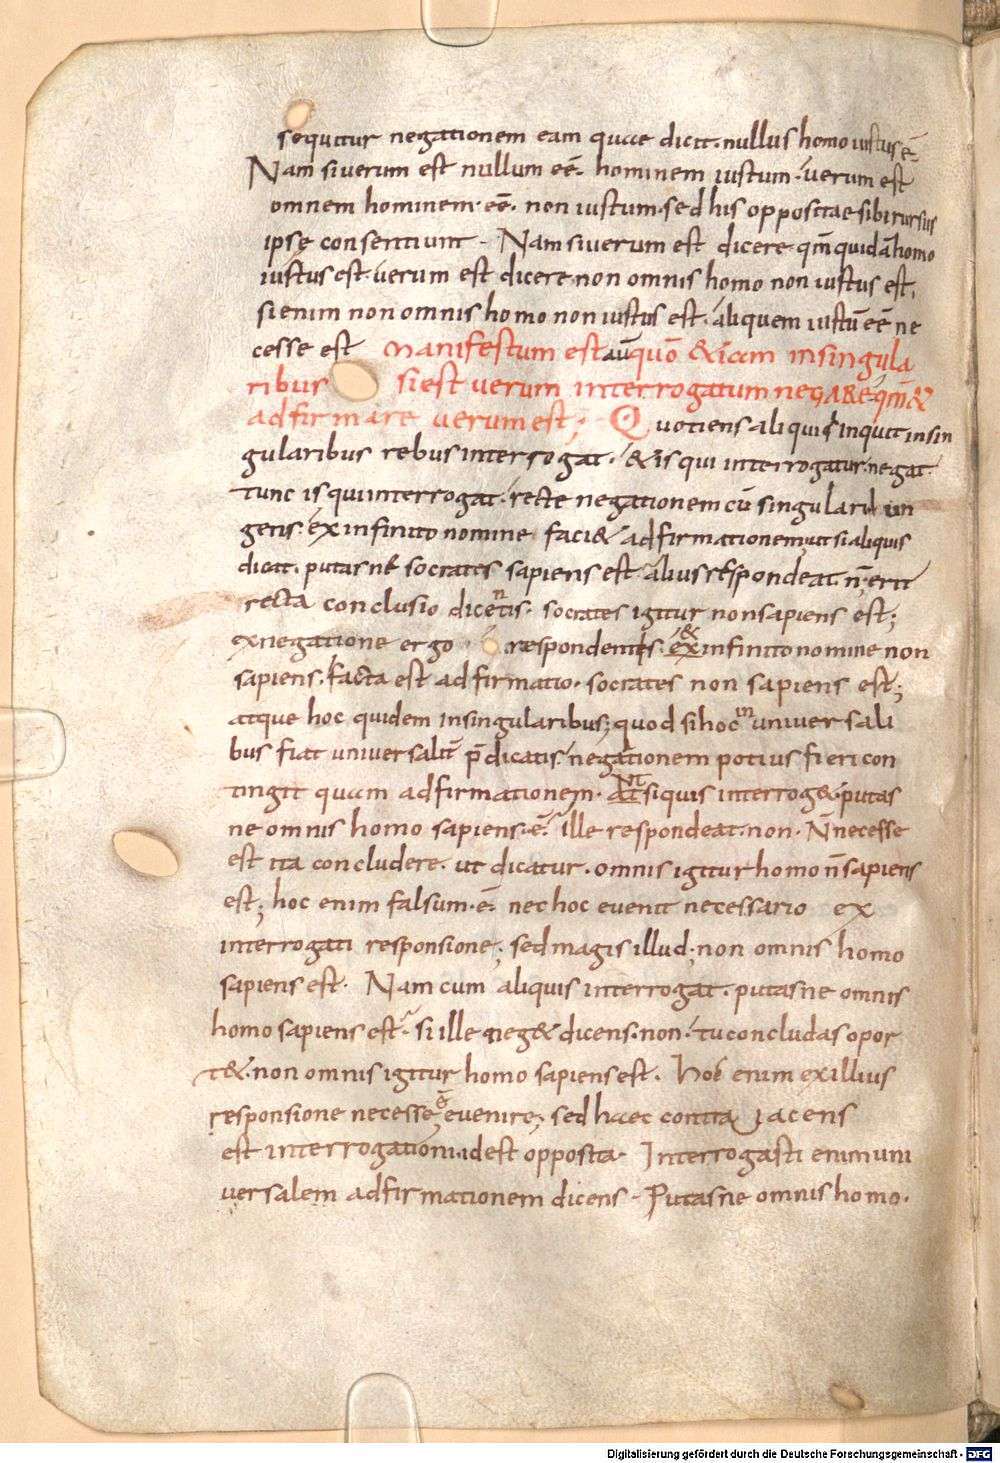 sequitur negationem eam quae dicit. nullus homo iustus ē.
Nam si uerum est nullum eē. hominem iustum. uerum est
omnem hominem. eē. non iustum. sed his oppositae sibi rursus
ipse consentiunt. Nam si uerum est dicere. qm̄ quidā homo
iustus est. uerum est dicere. non omnis homo non iustus est.
si enim non omnis homo non iustus est. aliquem iustū eē ne
cesse est manifestum est au quō & iam in singula
ribus si est uerum interrogatum negare. qm̄ &
adfirmare uerum est; Quotiens aliquis inquit in sin
gularibus rebus interrogat. & is qui interrogatur. negat.
tunc is qui interrogat. recte negationem cū singulari iun
gens. ex infinito nomine faci& adfirmationem; ut si aliquis
dicat. putasne socrates sapiens est. alius respondeat. n̄. erit
recta conclusio dicentis. socrates igitur non sapiens est;
ex negatione ergo respondentis. & ex infinito nomine non
sapiens. facta est adfirmatio. socrates non sapiens est;
atque hoc quidem in singularibus; quod si hoc in uniuersali
bus fiat uniuersalit̄ p̄dicatis. negationem potius fieri con
tingit quam adfirmationem. Nā si quis interrog&. putas
ne omnis homo sapiens. ē. ille respondeat. non. N̄ necesse
est ita concludere. ut dicatur. omnis igitur homo n̄ sapiens
est; hoc enim falsum. ē. nec hoc euenit necessario ex
interrogati responsione; sed magis illud; non omnis homo
sapiens est. Nam cum aliquis interrogat. putasne omnis
homo sapiens est. si ille neg& dicens. non. tu concludas opor
t&. non omnis igitur homo sapiens est. Hoc enim ex illius
responsione necesse ē euenire; sed haec contra iacens
est interrogationi. id est opposita. Interrogasti enim uni
uersalem adfirmationem dicens. Putasne omnis homo.
Digitalisierung gefördert durch die Deutsche Forschungsgemeinschaft - DFG